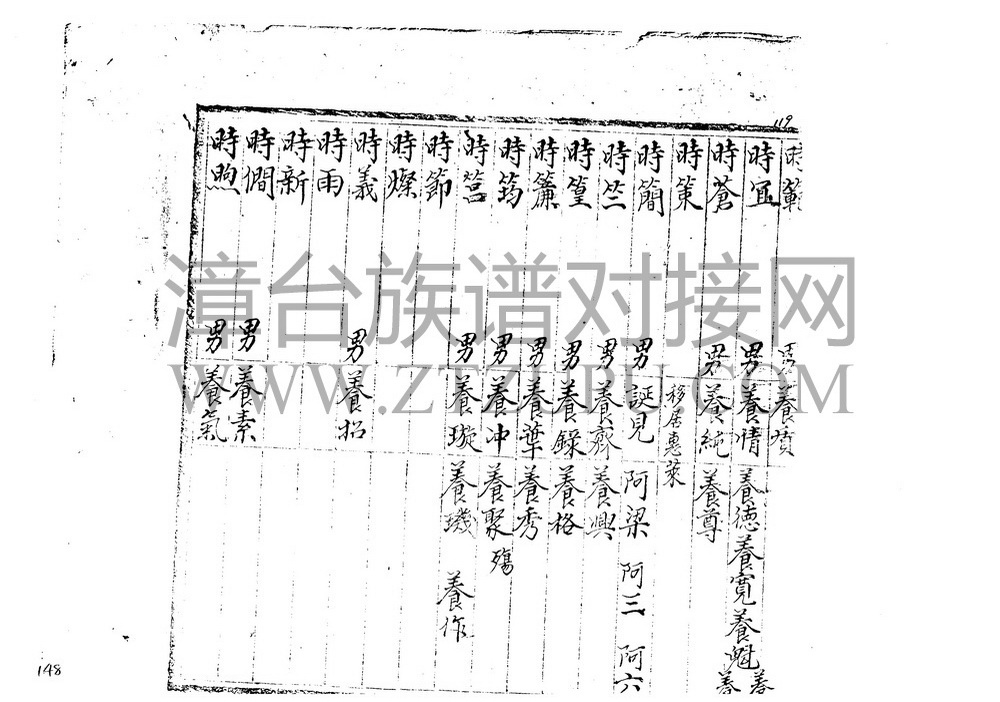 119
時範 男 養
時宜 男 養情 養德 養寬 養魁 養
時蒼 男 養純 養尊 養
時策 移居惠萊
時簡 男 誕見 阿梁 阿三 阿六
時竺 男 養齊 養興
時篁 男 養錄 養格
時簾 男 養葉 養秀
時筠 男 養冲 養聚 殤
時筥 男 養璇 養璣 養作
時節
時燦
時義 男 養招
時雨
時新
時僩 男 養素
時煦 男 養氣
漳台族谱对接网
WWW.ZTZUPU.COM
148